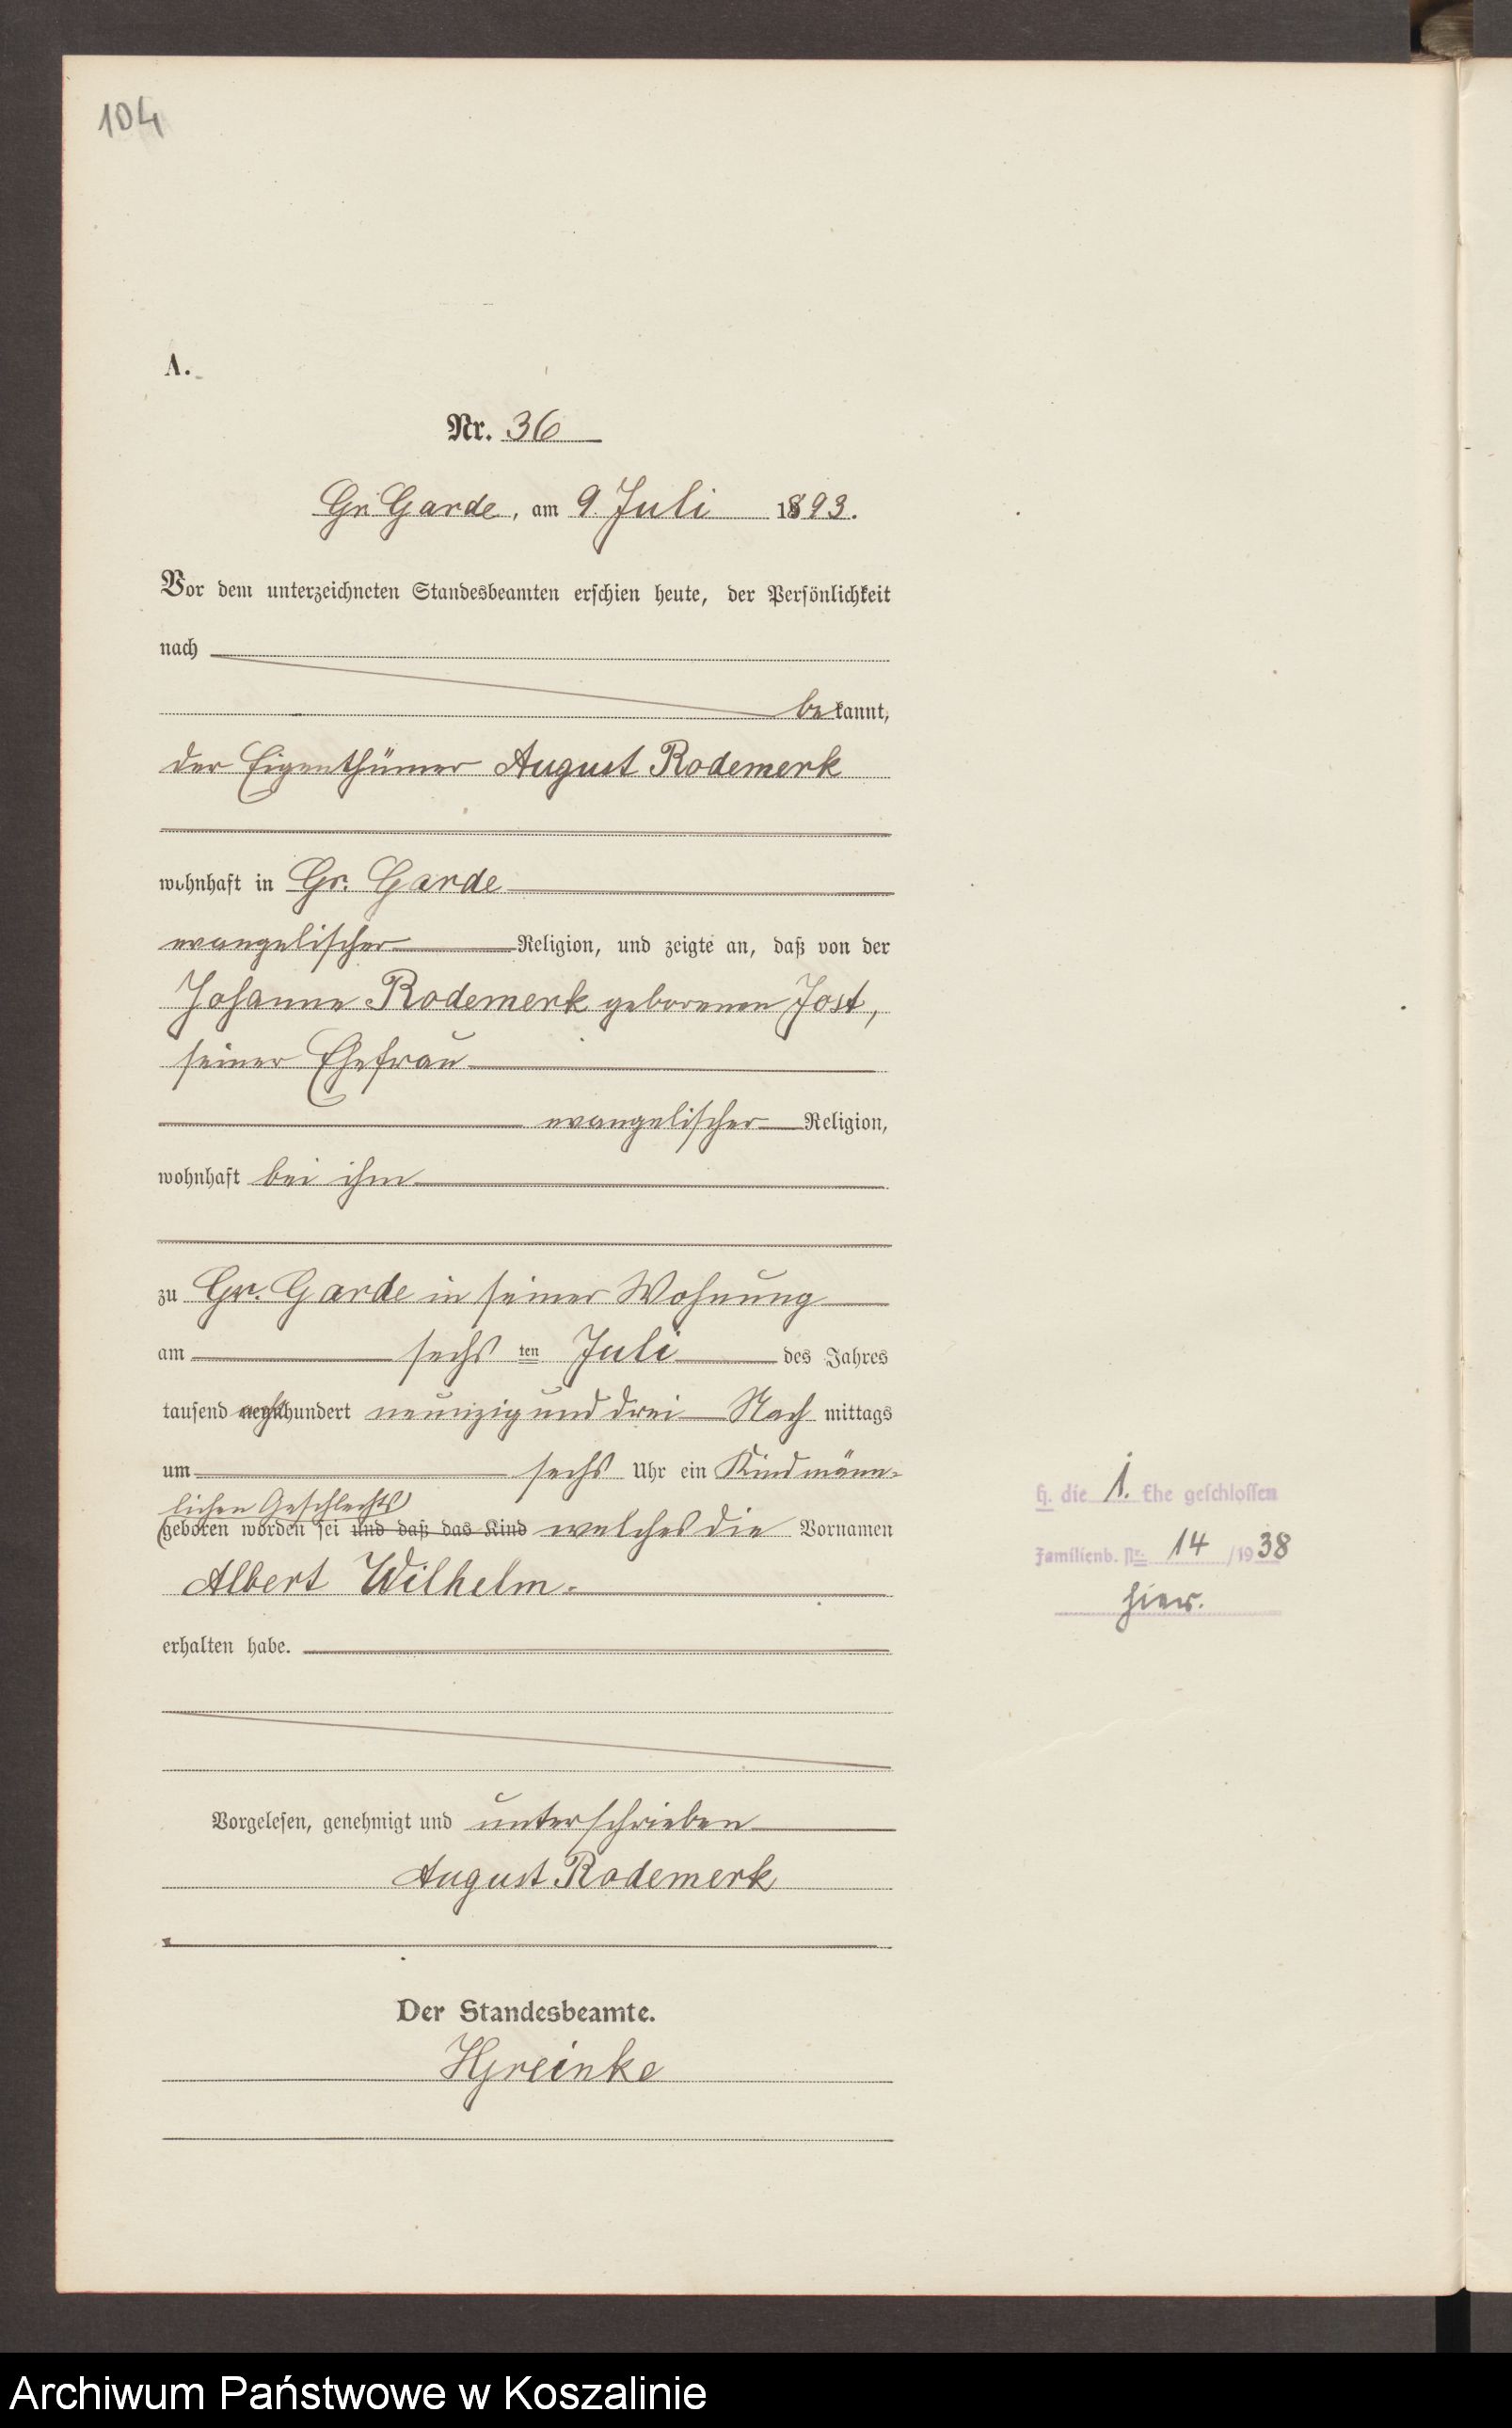 104
A.
Nr. 36
Gr. Garde, am 9. Juli 1893.
Vor dem unterzeichneten Standesbeamten erschien heute, der Persönlichkeit
nach
bekannt,
der Eigenthümer August Rodemerk
wohnhaft in Gr. Garde
evangelischer Religion, und zeigte an, daß von der
Johanne Rodemerk geborenen Jost,
seiner Ehefrau
evangelischer Religion,
wohnhaft bei ihm
zu Gr. Garde in seiner Wohnung
am sechs ten Juli des Jahres
tausend achthundert neunzig und drei Nach mittags
um sechs Uhr ein Kind männ-
lichen Geschlechts
geboren worden sei und daß das Kind welches die Vornamen
Albert Wilhelm.
erhalten habe.
Vorgelesen, genehmigt und unterschrieben
August Rodemerk
Der Standesbeamte.
HGreinke
H. die 1. Ehe geschlossen
Familienb. Nr. 14 /1938
hier.
Archiwum Państwowe w Koszalinie